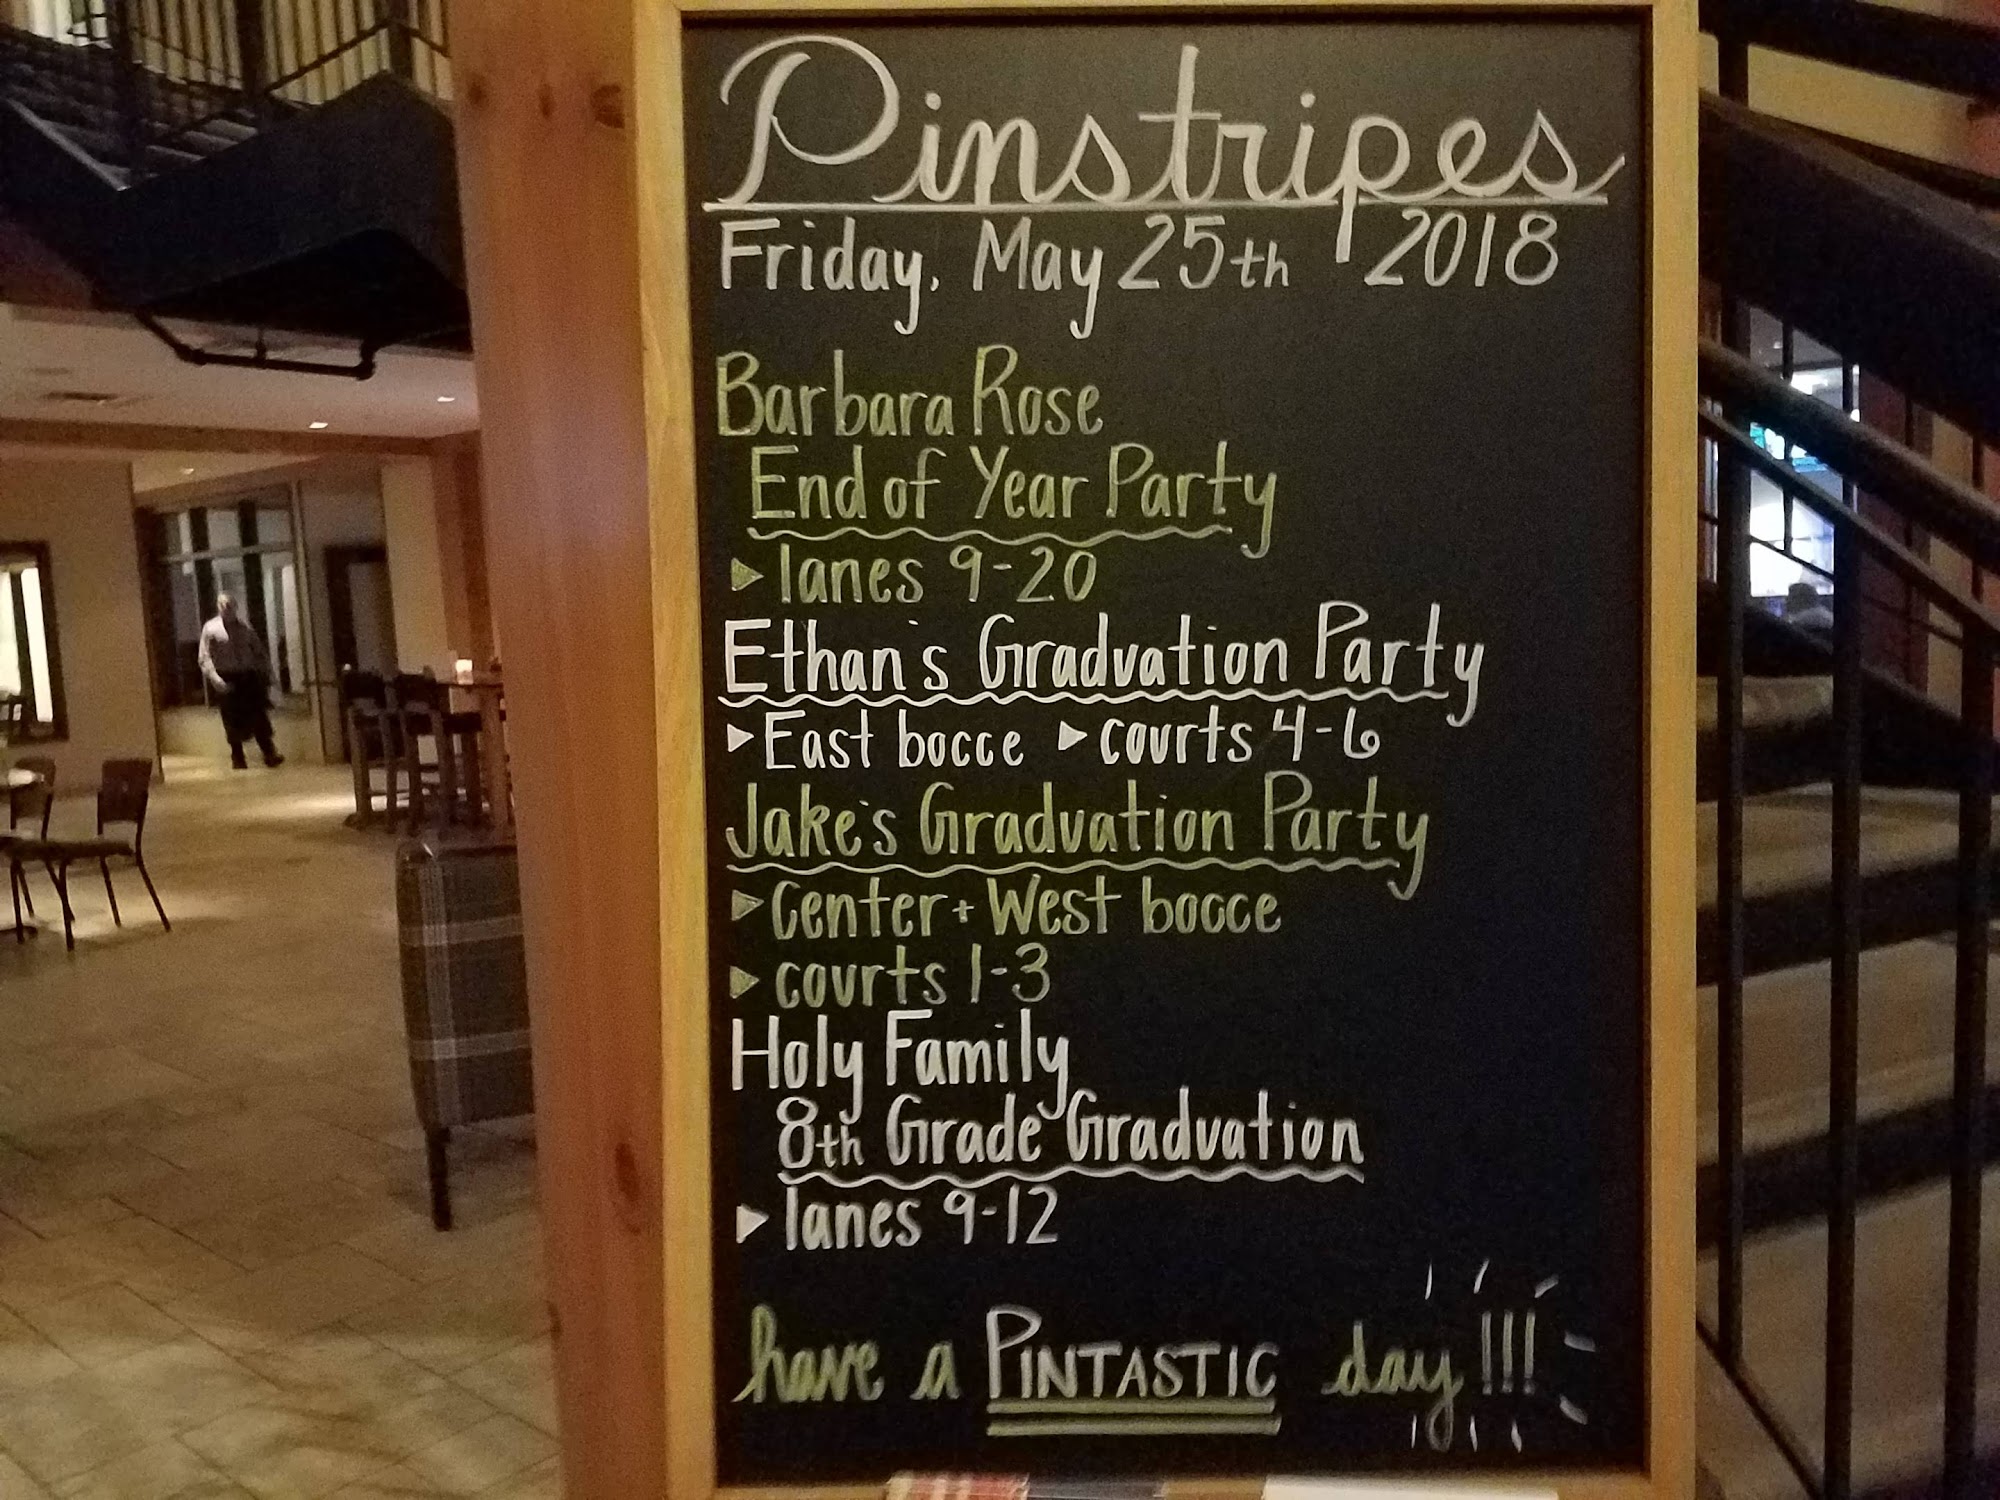 Pinstripes
Friday, May 25th 2018
Barbara Rose
End of Year Party
▸ lanes 9-20
Ethan's Graduation Party
▸ East bocce ▸ courts 4-6
Jake's Graduation Party
▸ Center + West bocce
▸ courts 1-3
Holy Family
8th Grade Graduation
▸ lanes 9-12
have a PINTASTIC day!!!